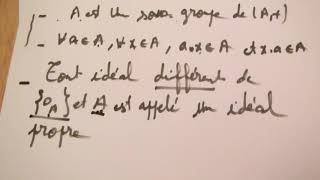 - A est un sous groupe de (A,+)
- ∀a∈A, ∀x∈A, a.x∈A et x.a∈A
- Tout idéal différent de
{0_A} et A est appelé un idéal
propre